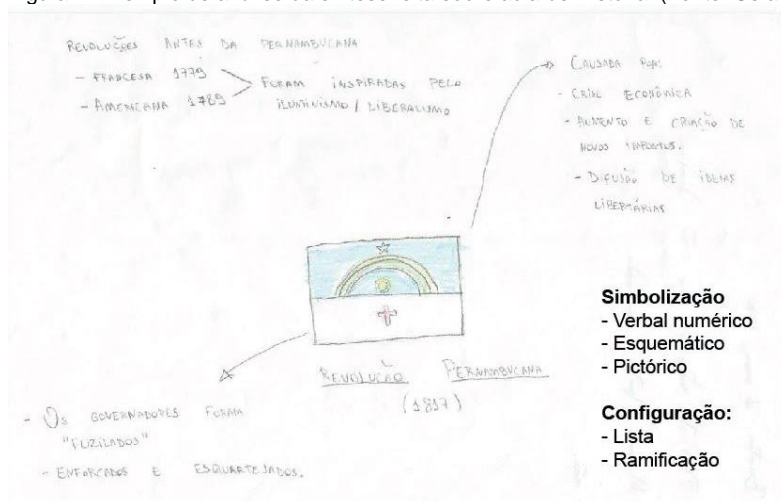 REVOLUÇÕES ANTES DA PERNAMBUCANA
- FRANCESA 1779
- AMERICANA 1789
FORAM INSPIRADAS PELO
ILUMINISMO / LIBERALISMO
CAUSADA POR:
- CRISE ECONÔMICA
- AUMENTO E CRIAÇÃO DE
NOVOS IMPOSTOS.
- DIFUSÃO DE IDEIAS
LIBERTÁRIAS
REVOLUÇÃO PERNAMBUCANA
(1817)
- OS GOVERNADORES FORAM
"FUZILADOS"
- ENFORCADOS E ESQUARTEJADOS.
Simbolização
- Verbal numérico
- Esquemático
- Pictórico
Configuração:
- Lista
- Ramificação